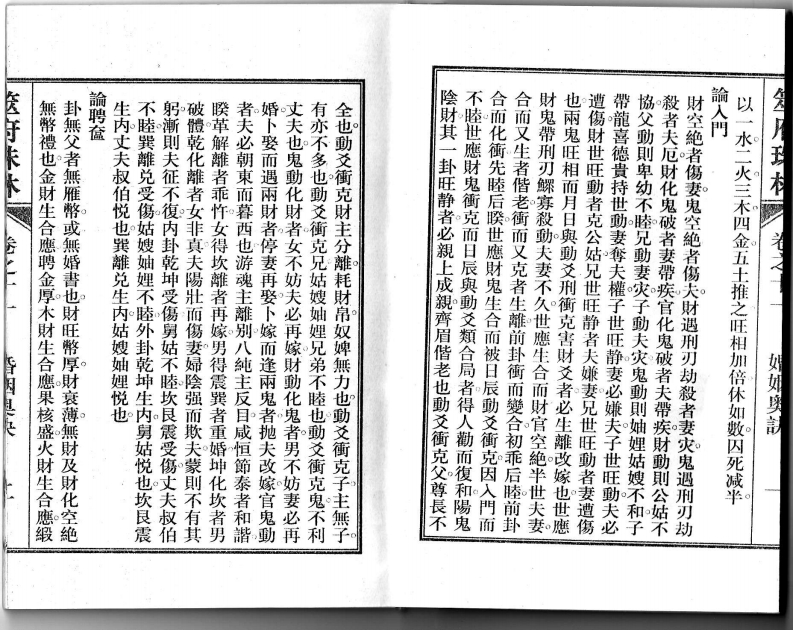 以一水二火三木四金五土推之旺相加倍休如數囚死減半
論入門
財空絶者傷妻鬼空絶者傷夫財遇刑刃劫殺者妻灾鬼遇刑刃劫
殺者夫厄財化鬼破者妻帶疾官化鬼破者夫帶疾財動則公姑不
協父動則卑幼不睦兄動妻灾子動夫灾鬼動則妯娌姑嫂不和子
帶龍喜德貴持世動妻奪夫權子世旺静妻必嫌夫子世旺動夫必
遭傷財世旺動者克公姑兄世旺静者夫嫌妻兄世旺動者妻遭傷
也兩鬼旺相而月日與動爻刑衝克害財爻者必生離改嫁也世應
財鬼帶刑刃鰥寡殺動夫妻不久世應生合而財官空絶半世夫妻
合而又生者偕老衝而又克者生離前卦衝而變合初乖后睦前卦
合而化衝先睦后睽世應財鬼生合而被日辰動爻衝克因入門而
不睦世應財鬼衝克而日辰與動爻類合局者得人勸而復和陽鬼
陰財其一卦旺静者必親上成親齊眉偕老也動爻衝克父尊長不
全也動爻衝克財主分離耗財帛奴婢無力也動爻衝克子主無子
有亦不多也動爻衝克兄姑嫂妯娌兄弟不睦也動爻衝克鬼不利
丈夫也鬼動化財者女不妨夫必再嫁財動化鬼者男不妨妻必再
婚卜娶而遇兩財者停妻再娶卜嫁而逢兩鬼者抛夫改嫁官鬼動
者夫必朝東而暮西也游魂主離別八純主反目咸恒節泰者和諧
睽革解離者乖忤女得坎離者再嫁男得震巽者重婚坤化坎者男
破體乾化離者女非真夫陽壯而傷妻婦陰强而欺夫蒙則不有其
躬漸則夫征不復内卦乾坤受傷舅姑不睦坎艮震受傷丈夫叔伯
不睦巽離兑受傷姑嫂妯娌不睦外卦乾坤生内舅姑悦也坎艮震
生内丈夫叔伯悦也巽離兑生内姑嫂妯娌悦也
論聘奩
卦無父者無雁幣或無婚書也財旺幣厚財衰薄無財及財化空絶
無幣禮也金財生合應聘金厚木財生合應果核盛火財生合應緞
筮府珠林
卷之十一
婚姻奥訣